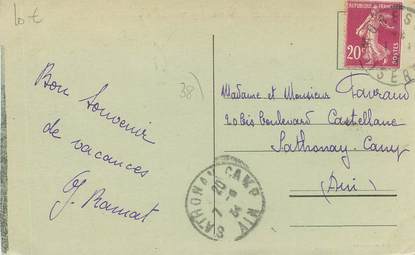 lot
38)
Bon Souvenir
de vacances
G. Ramat
REPUBLIQUE FRANCAISE
20c
POSTES
Madame et Monsieur Favraud
20 bis Boulevard Castellane
Sathonay-Camp
(Ain)
SATHONAY CAMP AIN
20
7
34